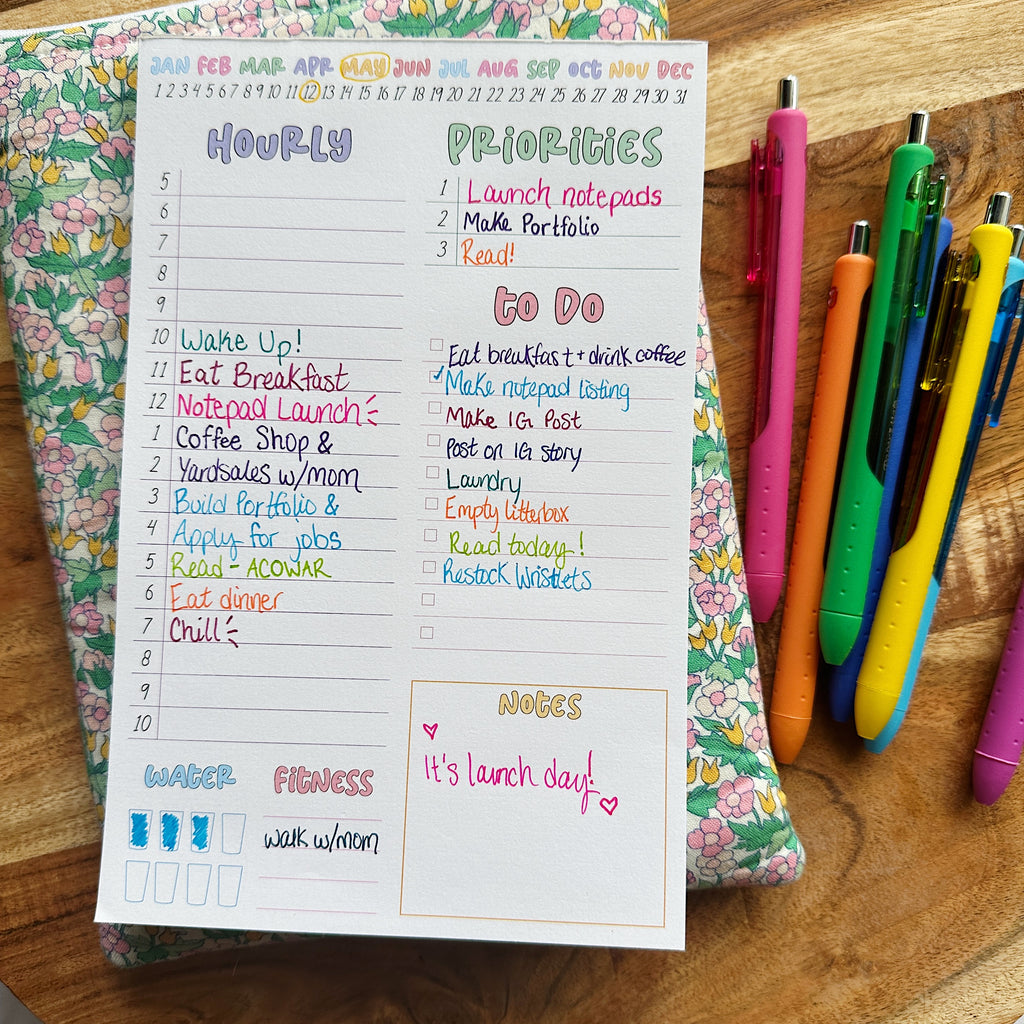 JAN FEB MAR APR MAY JUN JUL AUG SEP OCT NOV DEC
1 2 3 4 5 6 7 8 9 10 11 12 13 14 15 16 17 18 19 20 21 22 23 24 25 26 27 28 29 30 31
HOURLY
5
6
7
8
9
10 Wake Up!
11 Eat Breakfast
12 Notepad Launch
1 Coffee Shop &
2 Yardsales w/mom
3 Build Portfolio &
4 Apply for jobs
5 Read - ACOWAR
6 Eat dinner
7 Chill
8
9
10
PRIORITIES
1 Launch notepads
2 Make Portfolio
3 Read!
to Do
Eat breakfast + drink coffee
Make notepad listing
Make IG Post
Post on IG story
Laundry
Empty litterbox
Read today!
Restock Wristlets
WATER
FITNESS
walk w/mom
NOTES
It's launch day!